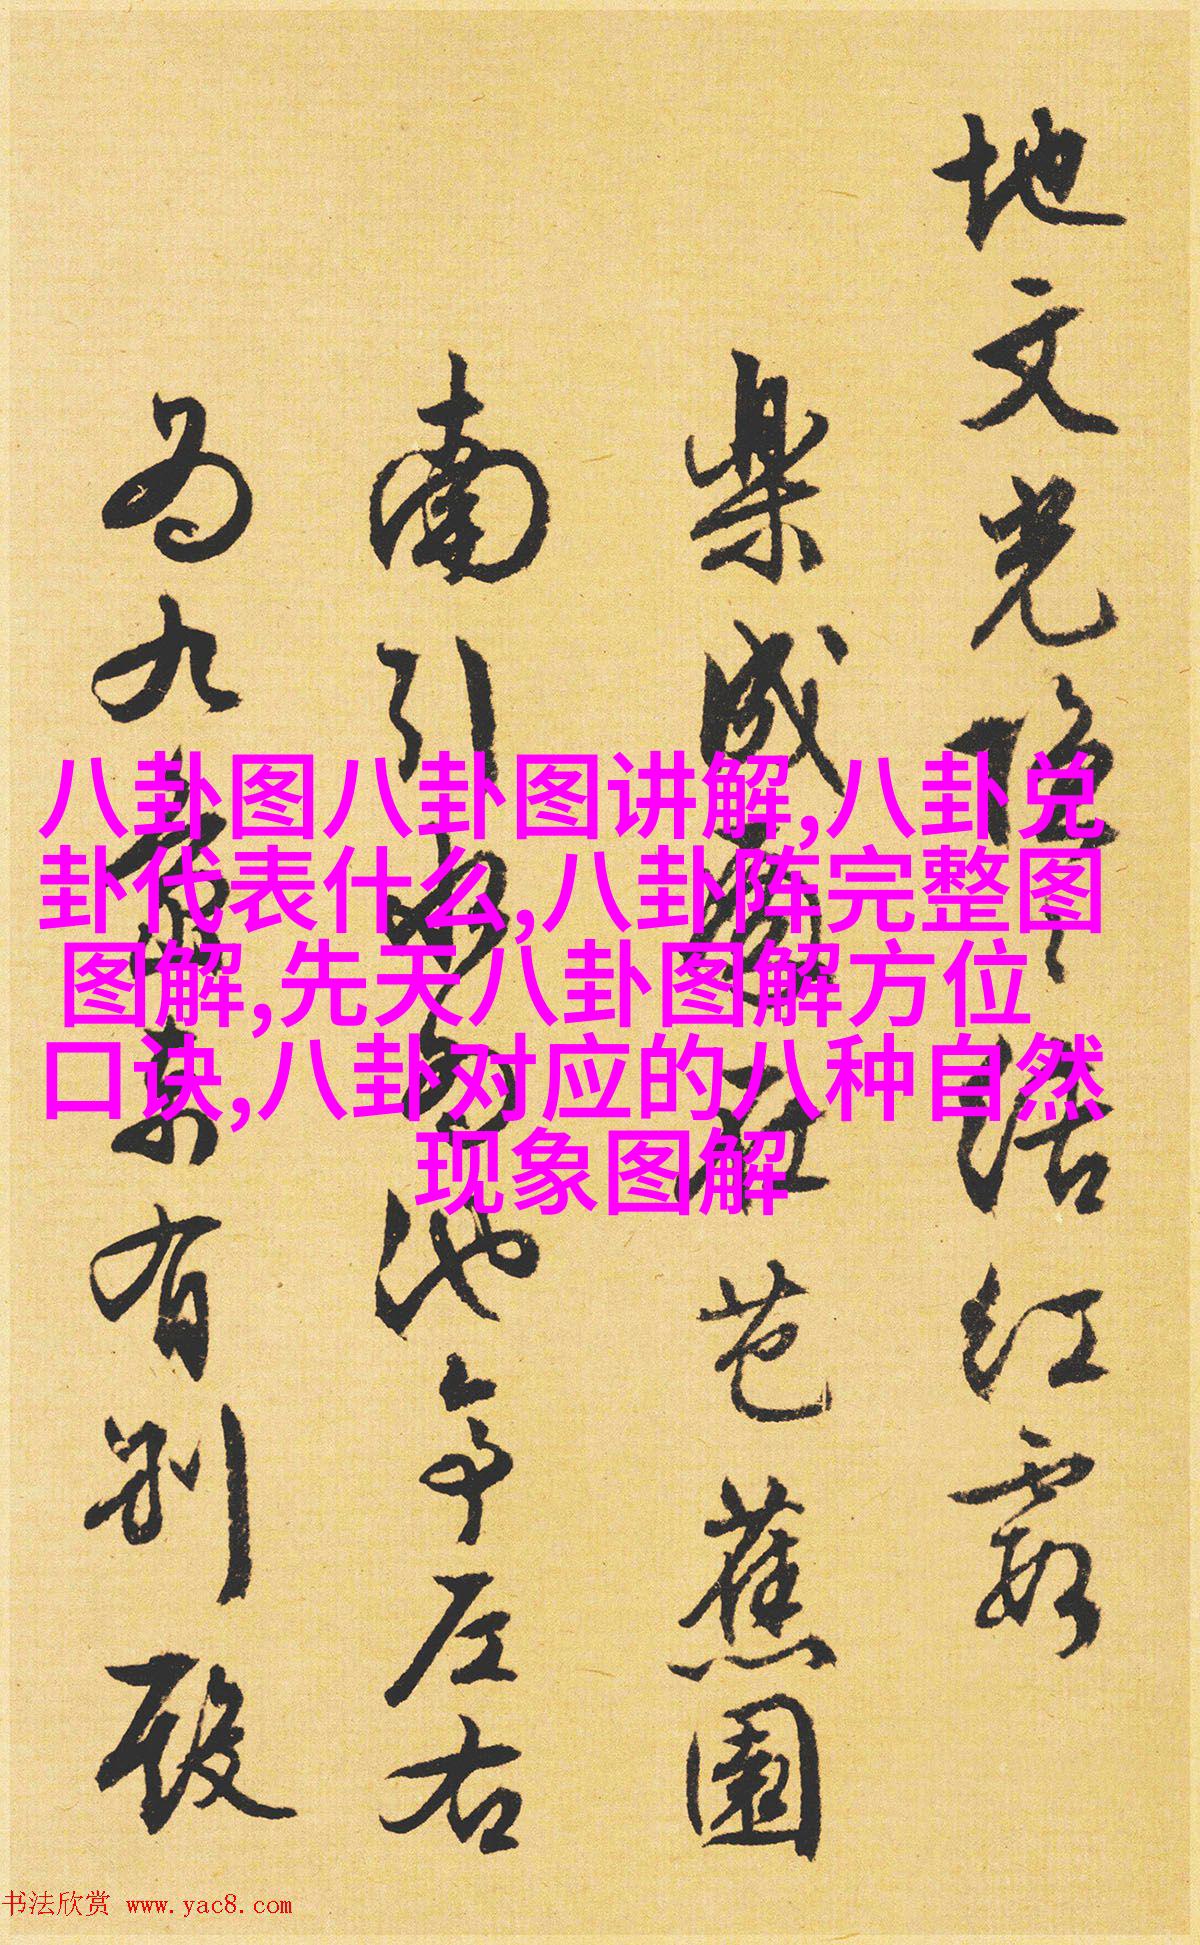 地文光阴了踏红霞
樂成 在芭蕉園
南引 池亭左右
为九 素有别殿
八卦图八卦图讲解,八卦兑
卦代表什么,八卦阵完整图
图解,先天八卦图解方位
口诀,八卦对应的八种自然
现象图解
书法欣赏 www.yac8.com